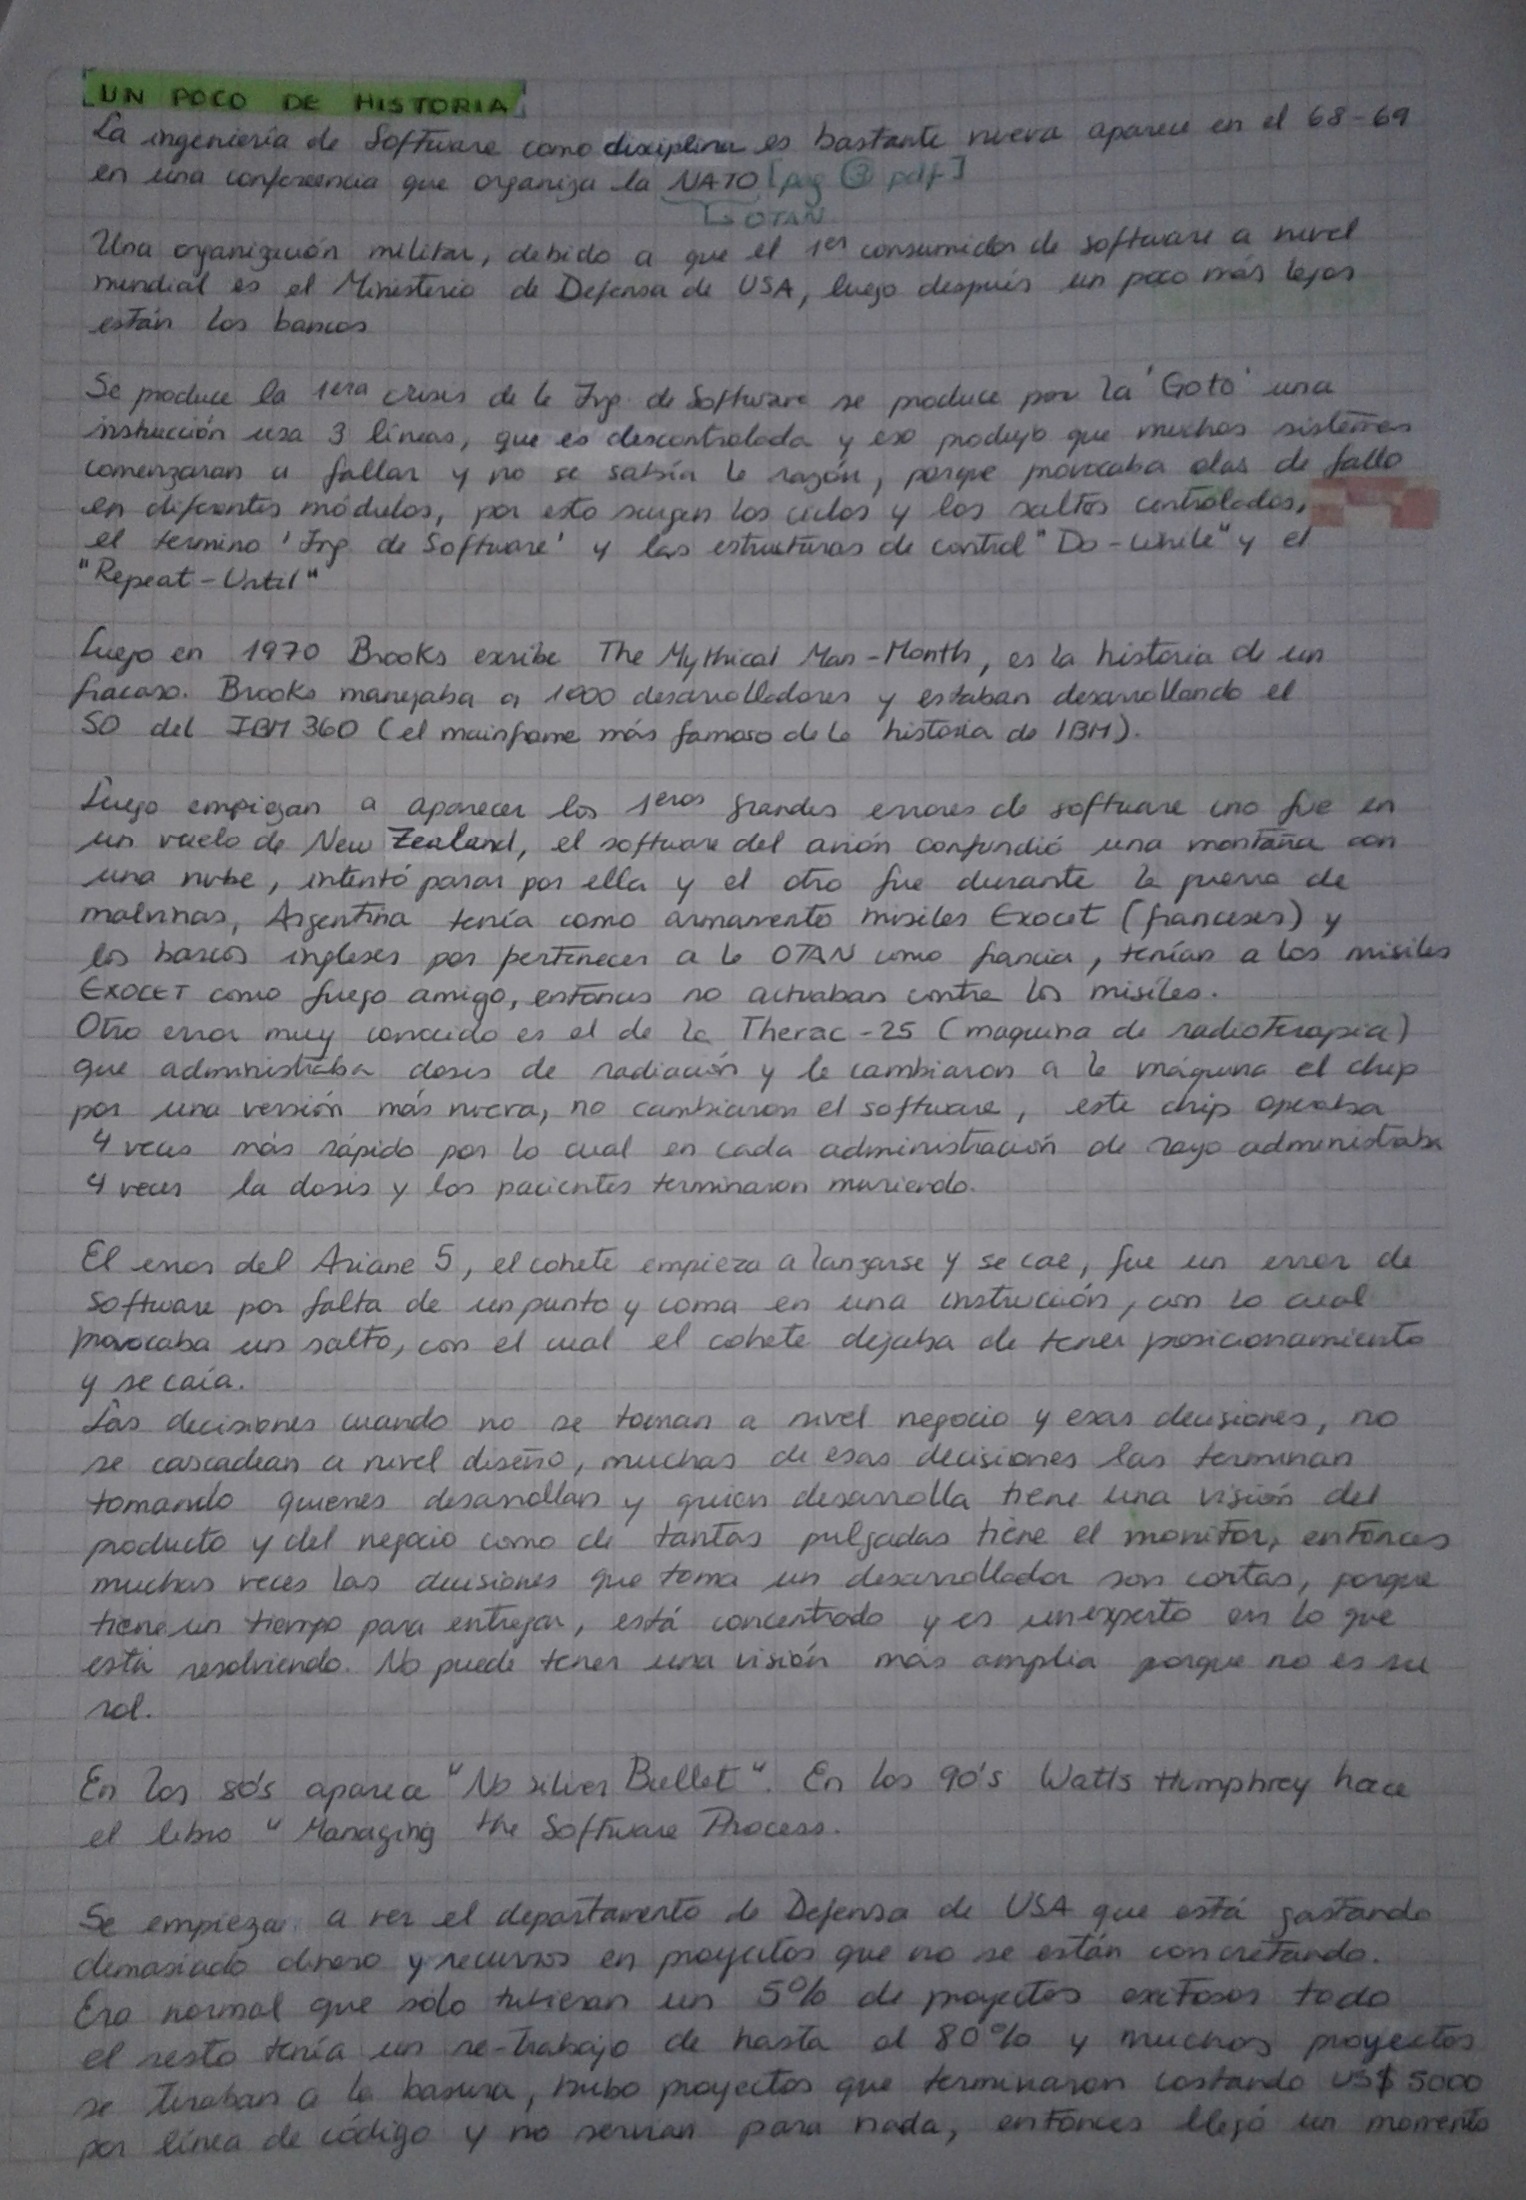 UN POCO DE HISTORIA
La ingeniería de Software como disciplina es bastante nueva aparece en el 68-69
en una conferencia que organiza la NATO [pag 3 pdf]
↳ OTAN
Una organización militar, debido a que el 1er consumidor de software a nivel
mundial es el Ministerio de Defensa de USA, luego después un poco más lejos
están los bancos
Se produce la 1era crisis de la Ing. de Software se produce por la 'Goto' una
instrucción usa 3 líneas, que es descontrolada y eso produjo que muchos sistemas
comenzaran a fallar y no se sabía la razón, porque provocaba olas de fallo
en diferentes módulos, por esto surgen los ciclos y los saltos controlados,
el termino 'Ing. de Software' y las estructuras de control "Do-While" y el
"Repeat-Until"
Luego en 1970 Brooks escribe The Mythical Man-Month, es la historia de un
fracaso. Brooks manejaba a 1000 desarrolladores y estaban desarrollando el
SO del IBM 360 (el mainframe más famoso de la historia de IBM).
Luego empiezan a aparecer los 1eros grandes errores de software uno fue en
un vuelo de New Zealand, el software del avión confundió una montaña con
una nube, intentó pasar por ella y el otro fue durante la guerra de
malvinas, Argentina tenía como armamento misiles Exocet (franceses) y
los barcos ingleses por pertenecer a la OTAN como francia, tenían a los misiles
EXOCET como fuego amigo, entonces no actuaban contra los misiles.
Otro error muy conocido es el de la Therac-25 (maquina de radioterapia)
que administraba dosis de radiación y le cambiaron a la máquina el chip
por una versión más nueva, no cambiaron el software, este chip operaba
4 veces más rápido por lo cual en cada administración de rayo administraba
4 veces la dosis y los pacientes terminaron muriendo.
El error del Ariane 5, el cohete empieza a lanzarse y se cae, fue un error de
software por falta de un punto y coma en una instrucción, con lo cual
provocaba un salto, con el cual el cohete dejaba de tener posicionamiento
y se caía.
Las decisiones cuando no se toman a nivel negocio y esas decisiones, no
se cascadean a nivel diseño, muchas de esas decisiones las terminan
tomando quienes desarrollan y quien desarrolla tiene una visión del
producto y del negocio como de tantas pulgadas tiene el monitor, entonces
muchas veces las decisiones que toma un desarrollador son cortas, porque
tiene un tiempo para entregar, está concentrado y es un experto en lo que
está resolviendo. No puede tener una visión mas amplia porque no es su
rol.
En los 80's aparece "No silver Bullet". En los 90's Watts Humphrey hace
el libro "Managing the Software Process.
Se empieza a ver el departamento de Defensa de USA que está gastando
demasiado dinero y recursos en proyectos que no se están concretando.
Era normal que solo tubieran un 5% de proyectos exitosos todo
el resto tenía un re-trabajo de hasta el 80% y muchos proyectos
se tiraban a la basura, hubo proyectos que terminaron costando US$ 5000
por línea de código y no servían para nada, entonces llegó un momento